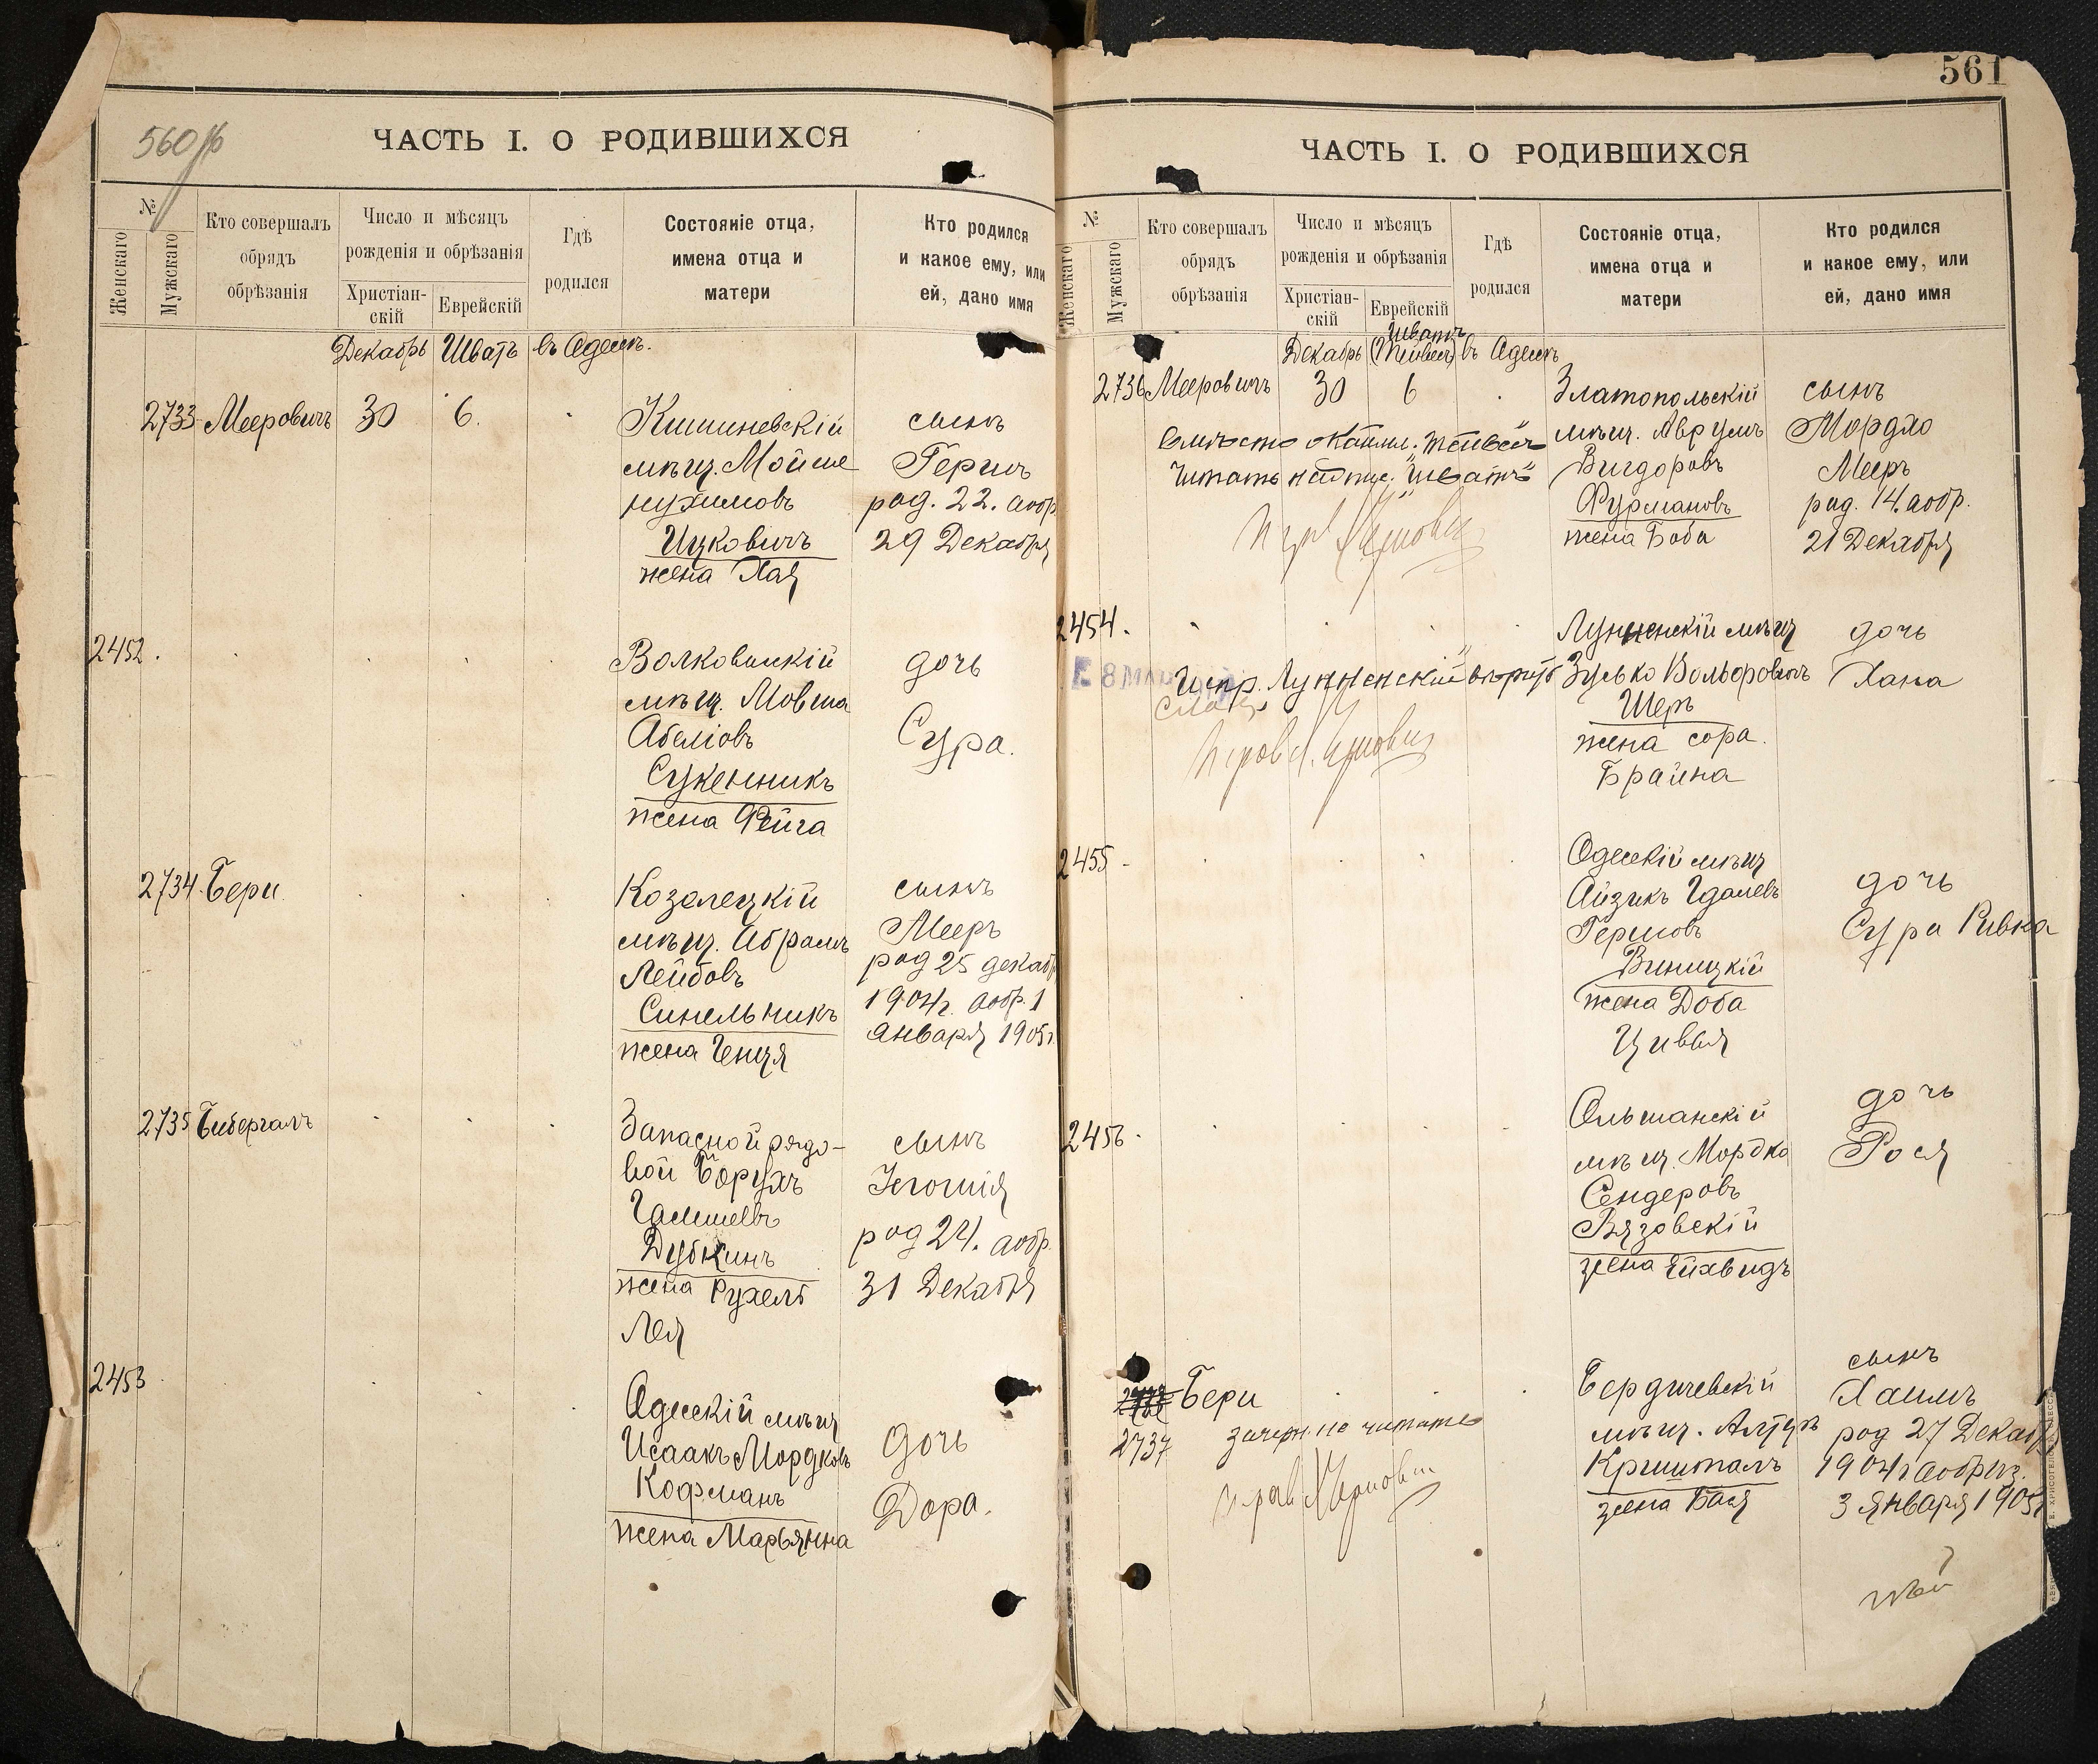 560об
ЧАСТЬ I. О РОДИВШИХСЯ
№
Женскаго
Мужскаго
Кто совершалъ
обрядъ
обрѣзанія
Число и мѣсяцъ
рожденія и обрѣзанія
Христіан-
скій
Еврейскій
Гдѣ
родился
Состояніе отца,
имена отца и
матери
Кто родился
и какое ему, или
ей, дано имя
Декабрь Шватъ въ Одессѣ.
2733 Мееровичъ 30 6.
Кишиневскій
мѣщ. Мойше
Нухимовъ
Ицковичъ
жена Хая
сынъ
Гершъ
род. 22. а обр
29 Декабря
2452.
Волковискій
мѣщ. Мовша
Абеліовъ
Сукенникъ
жена Фейга
дочь
Сура.
2734. Бери
Козелецкій
мѣщ. Абрамъ
Лейбовъ
Синельникъ
жена Генця
сынъ
Мееръ
род 25 декаб
1904г. а обр. 1
января 1905г.
2735 Бибергалъ
Запасной рядо-
вой Борухъ
Дубкинъ
жена Рухель
Лея
сынъ
род 24. а обр.
31 Декабря
2453
Одесскій мѣщ
Исаакъ Мордковъ
Кофманъ
жена Марьянна
дочь
Дора.
561
ЧАСТЬ I. О РОДИВШИХСЯ
№
Женскаго
Мужскаго
Кто совершалъ
обрядъ
обрѣзанія
Число и мѣсяцъ
рожденія и обрѣзанія
Христіан-
скій
Еврейскій
Гдѣ
родился
Состояніе отца,
имена отца и
матери
Кто родился
и какое ему, или
ей, дано имя
Шватъ
Декабрь (Тейвесъ) въ Одессѣ
2736 Мееровичъ 30 6
Вмѣсто "Тейвесъ"
Читать надпис. "Шватъ"
Златопольскій
мѣщ. Аврумъ
Вигдоровъ
Фурмановъ
жена Боба
сынъ
Мордко
Мееръ
род. 14. а обр.
21 Декабря
2454.
Испр. Лунненскій вѣрно
Лунненскій мѣщ
Зусько Вольфовичъ
Шеръ
жена Сора
Брайна
дочь
Хана
2455
Одесскій мѣщ
Айзикъ Гдалевъ
Гершовъ
Виницкій
жена Доба
Цивья
дочь
Сура Ривка
2456
Ольшанскій
мѣщ. Мордко
Сендеровъ
Вязовскій
жена
дочь
Рося
Бери
2737
зачерк. не читать
Бердичевскій
мѣщ. Алтеръ
Кришталъ
жена Бася
сынъ
Хаимъ
род 27 Декаб
1904г а обрѣз.
3 Января 1905г